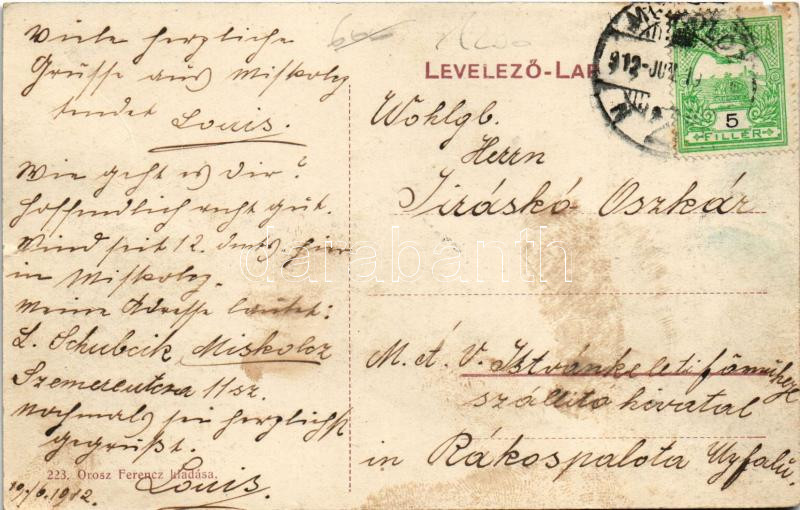 Viele herzliche
Grüsse aus Miskolcz
sendet
Louis.
Wie geht es Dir?
Hoffentlich recht gut.
Wind seit 12. dmts. hier
in Miskolcz.
Meine Adresse lautet:
L. Schubcik, Miskolcz
Szemereutcza 11 sz.
Nochmals sei herzlichst
gegrüßt.
Louis.
19/6.1912.
223. Orosz Ferencz kiadása.
LEVELEZŐ-LAP
5
FILLÉR
912-JUN
Wohlgb.
Herrn
Jiráskó Oszkár
M. Á. V. Istvánkeleti főműhely
szállító hivatal
in Rákospalota Ujfalú.
darabanth